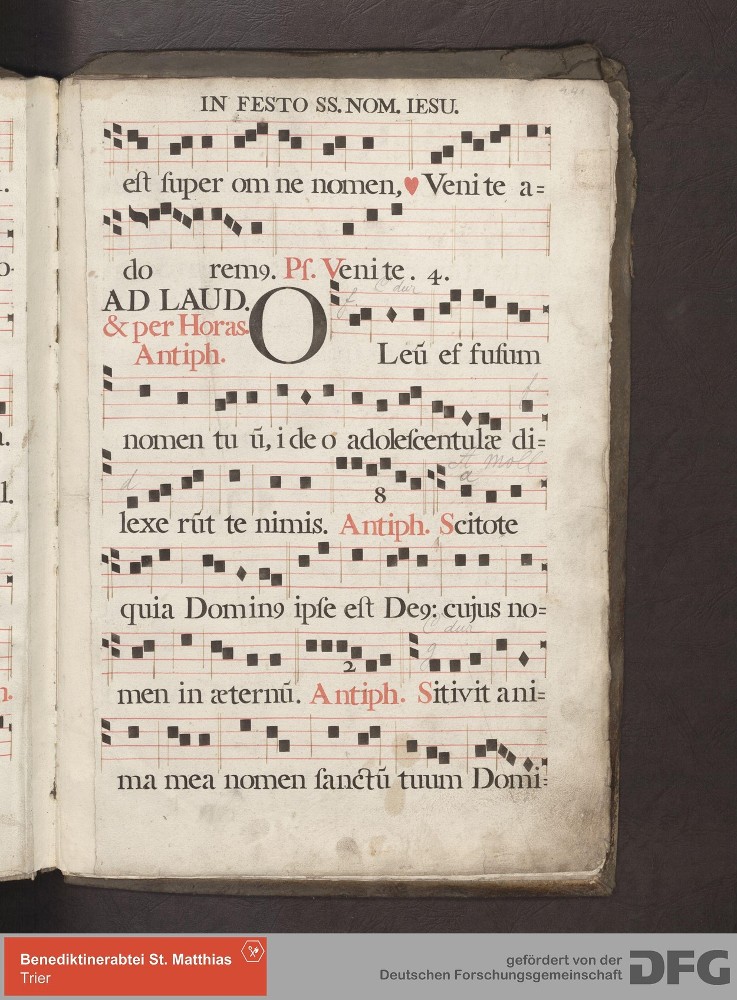 IN FESTO SS. NOM. IESU.
eſt ſuper om ne nomen, Veni te a=
do rem9. Pſ. Venite. 4.
AD LAUD.
& per Horas.
Antiph.
OLeū ef fuſum
C dur
nomen tu ū, i de o adoleſcentulæ di=
lexe rūt te nimis. Antiph. Scitote
8
moll
quia Domin9 ipſe eſt De9: cujus no=
men in æternū. Antiph. Sitivit ani=
2
C dur
ma mea nomen ſanctū tuum Domi=
Benediktinerabtei St. Matthias
Trier
gefördert von der
Deutschen Forschungsgemeinschaft
DFG